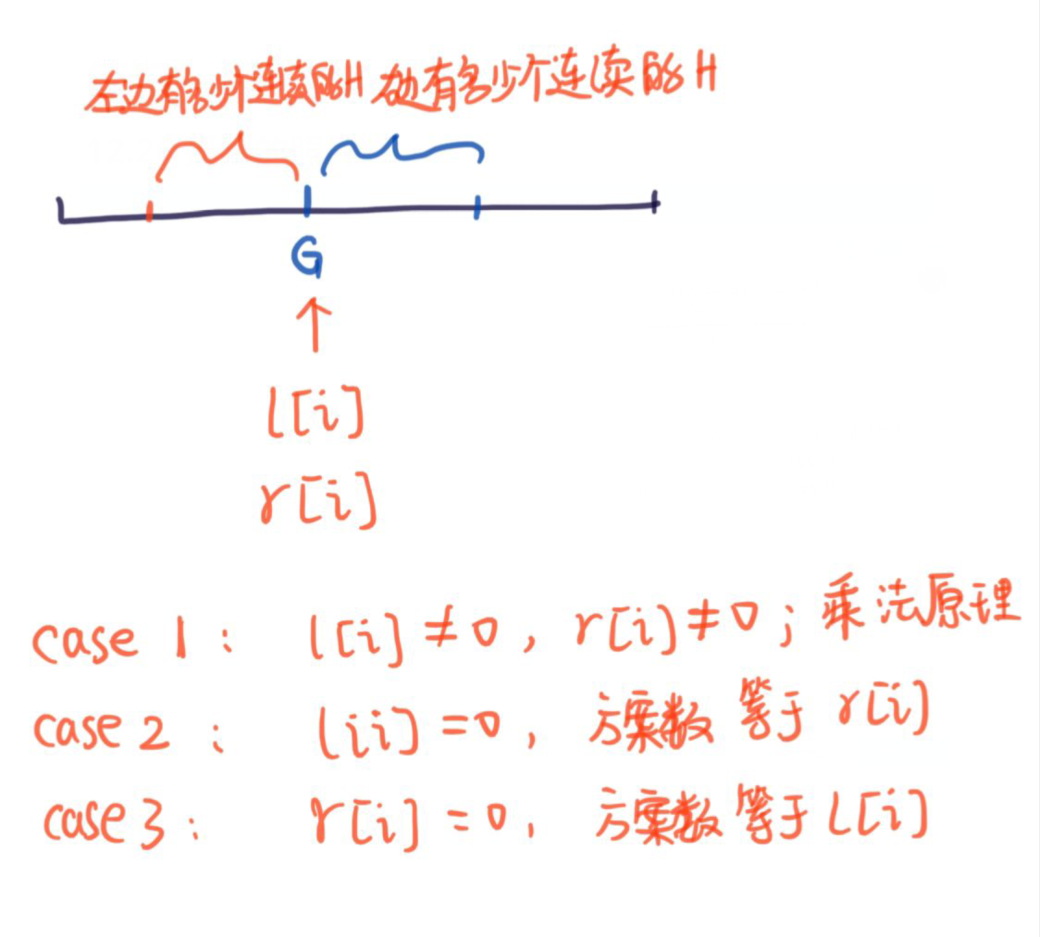 左边有多少个连续的H 右边有多少个连续的H
G
l[i]
r[i]
case 1: l[i]≠0, r[i]≠0; 乘法原理
case 2: l[i]=0, 方案数等于 r[i]
case 3: r[i]=0, 方案数等于 l[i]